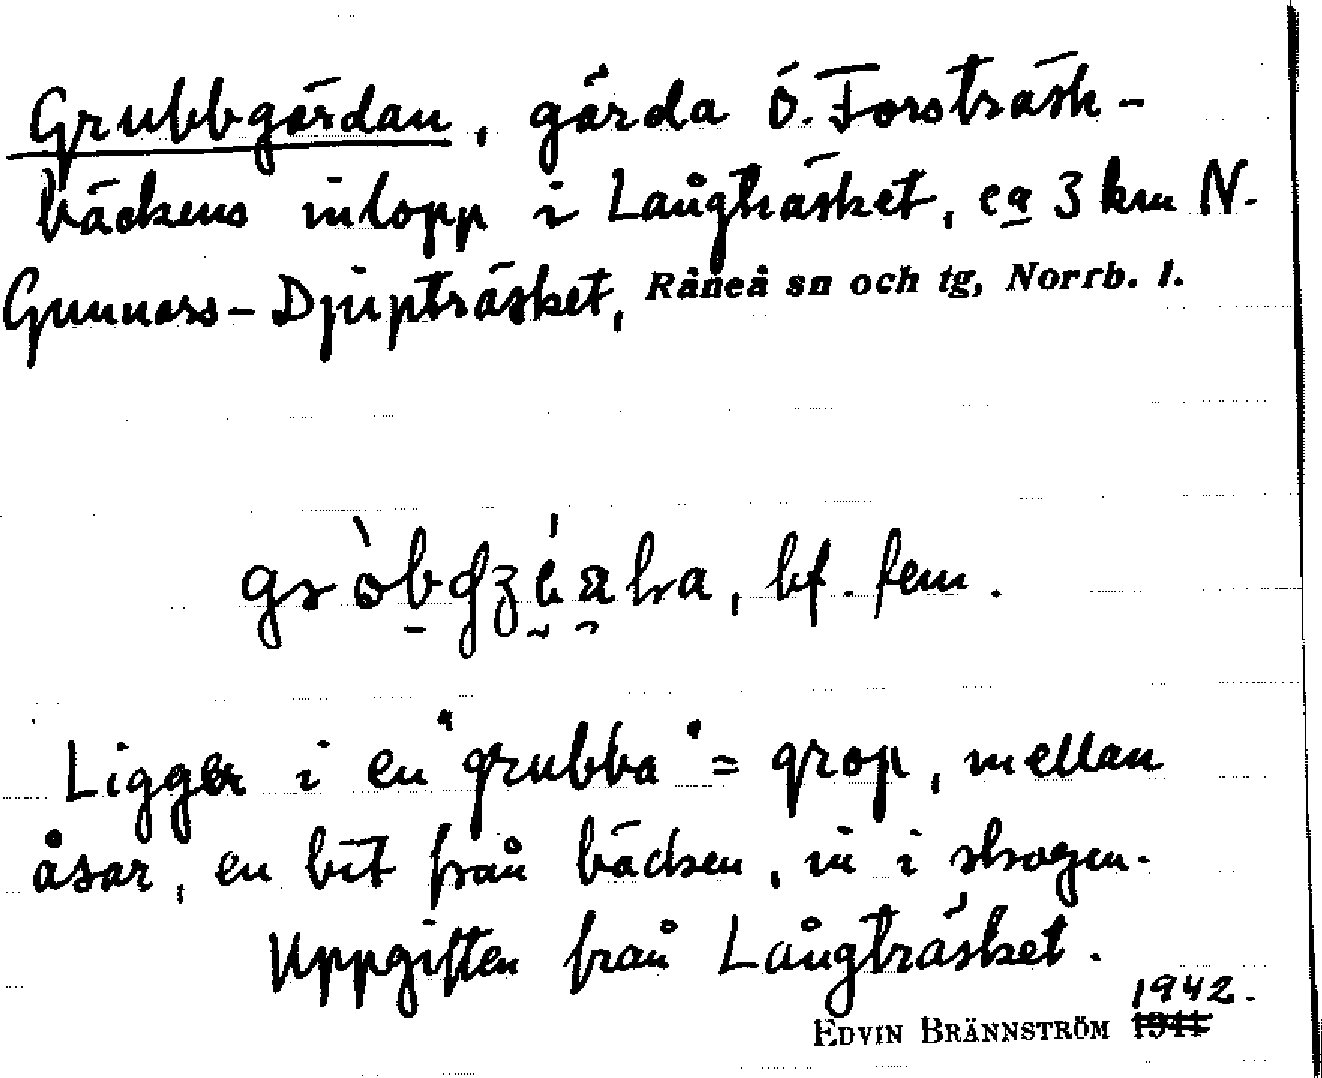 Grubbgärdan, gärda Ö. Forsträsk-
bäckens inlopp i Långträsket, ca 3 km N.
Gunnars-Djupträsket, Råneå sn och tg, Norrb. l.
bf. fem.
Ligger i en "grubba" = grop, mellan
åsar, en bit från bäcken, in i skogen.
Uppgiften från Långträsket.
1942.
EDVIN BRÄNNSTRÖM 1941